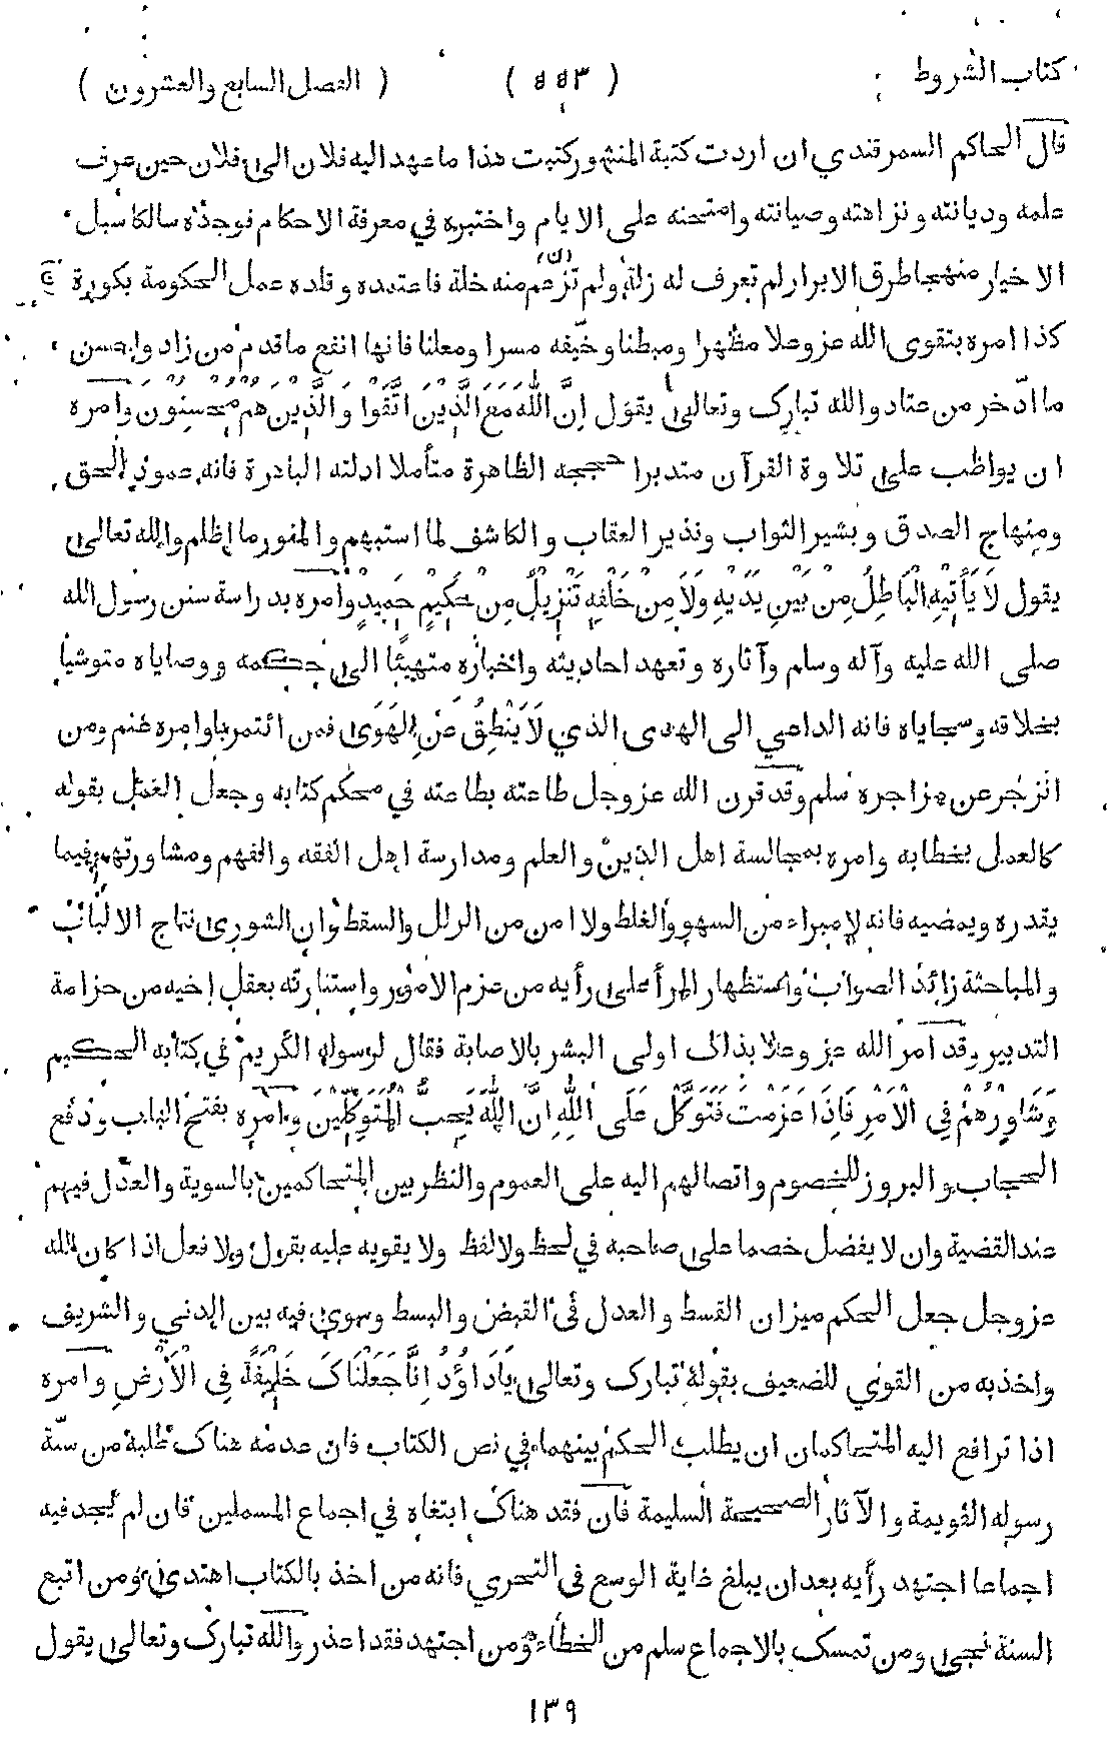 كتاب الشروط ( ٥٥٣ ) ( الفصل السابع والعشرون )
قال الحاكم السمرقندي ان اردت كتبة المنشور كتبت هذا ما عهد اليه فلان الى فلان حين عرف
علمه وديانته ونزاهته وصيانته وامتحنه على الايام واختبره في معرفة الاحكام فوجده سالكا سبل
الاخيار منهجا طرق الابرار لم تعرف له زلة ولم تزعم منه خلة فاعتمده وقلده عمل الحكومة بكورة
كذا امره بتقوى الله عز وعلا مظهرا ومبطنا وخيفه مسرا ومعلنا فانها انفع ما قدم من زاد واحسن
ما ادّخر من عتاد والله تبارك وتعالى يقول إِنَّ اللَّهَ مَعَ الَّذِيْنَ اتَّقَوْا وَالَّذِيْنَ هُمْ مُحْسِنُوْنَ وامره
ان يواظب على تلاوة القرآن متدبرا حججه الظاهرة متأملا ادلته الباهرة فانه عمود الحق
ومنهاج الصدق وبشير الثواب ونذير العقاب والكاشف لما استبهم والمنور ما اظلم والله تعالى
يقول لَا يَأْتِيْهِ الْبَاطِلُ مِنْ بَيْنِ يَدَيْهِ وَلَا مِنْ خَلْفِهِ تَنْزِيْلٌ مِنْ حَكِيْمٍ حَمِيْدٍ وامره بدراسة سنن رسول الله
صلى الله عليه وآله وسلم وآثاره وتعهد احاديثه واخباره متهيئًا الى حكمه ووصاياه متوشيا
بخلاقه وسجاياه فانه الداعي الى الهدى الذي لَا يَنْطِقُ عَنِ الْهَوَى فمن ائتمر باوامره غنم ومن
انزجر عن مزاجره سلم وقد قرن الله عز وجل طاعته بطاعته في محكم كتابه وجعل العمل بقوله
كالعمل بخطابه وامره بمجالسة اهل الدين والعلم ومدارسة اهل الفقه والفهم ومشاورتهم فيما
يقدره ويمضيه فانه لا مبراء من السهو والغلط ولا امن من الزلل والسقط وان الشورى نتاج الالباب
والمباحثة زائد الصواب واستظهار المرأ على رأيه من عزم الامور واستنارته بعقل اخيه من حزامة
التدبير وقد امر الله عز وعلا بذاك اولى البشر بالاصابة فقال لرسوله الكريم في كتابه الحكيم
وَشَاوِرْهُمْ فِي الْأَمْرِ فَإِذَا عَزَمْتَ فَتَوَكَّلْ عَلَى اللَّهِ إِنَّ اللَّهَ يُحِبُّ الْمُتَوَكِّلِيْنَ وامره بفتح الباب ورفع
الحجاب والبروز للخصوم واتصالهم اليه على العموم والنظر بين المتحاكمين بالسوية والعدل فيهم
عند القضية وان لا يفضل خصما على صاحبه في لحظ ولا لفظ ولا يقويه عليه بقول ولا فعل اذا كان الله
عز وجل جعل الحكم ميزان القسط والعدل في القبض والبسط وسوى فيه بين الدني والشريف
واخذ به من القوي للضعيف بقوله تبارك وتعالى يَادَاوُدُ إِنَّا جَعَلْنَاكَ خَلِيْفَةً فِي الْأَرْضِ وامره
اذا ترافع اليه المتحاكمان ان يطلب الحكم بينهما في نص الكتاب فان عدمه هناك طلبه من سنّة
رسوله القويمة والآثار الصحيحة السليمة فان فقد هناك ابتغاه في اجماع المسلمين فان لم يجد فيه
اجماعا اجتهد رأيه بعد ان يبلغ غاية الوسع في التحري فانه من اخذ بالكتاب اهتدى ومن اتبع
السنة نجى ومن تمسك بالاجماع سلم من الخطاء ومن اجتهد فقد اعذر والله تبارك وتعالى يقول
١٣٩